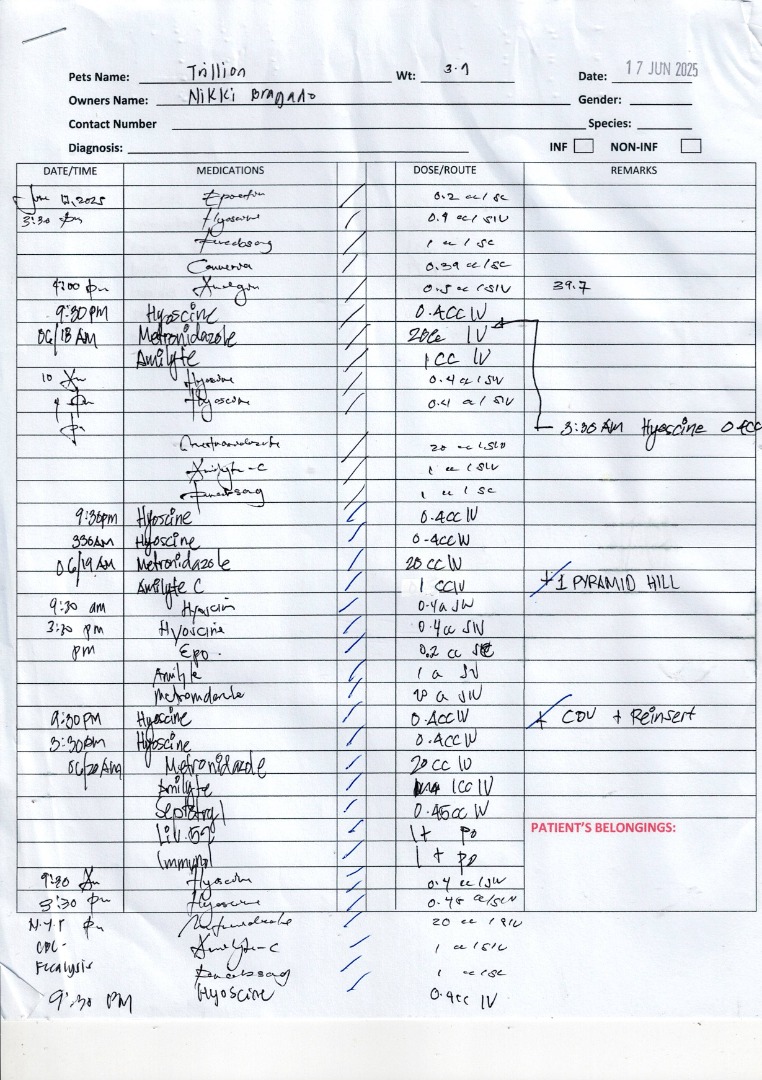 Pets Name: Trillion Wt: 3.9 Date: 17 JUN 2025
Owners Name: Nikki Bragado Gender:
Contact Number Species:
Diagnosis: INF NON-INF
DATE/TIME MEDICATIONS DOSE/ROUTE REMARKS
June 17, 2025 Epoetin 0.2 cc/sc
3:30 pm Hyoscine 0.4 cc/SIV
1 cc/sc
0.39 cc/sc
4:00 pm 0.5 cc/SIV 39.7
9:30PM Hyoscine 0.4CC IV
06/18 AM Metronidazole 20cc IV
Amilyte 1CC IV
10 Hyoscine 0.4 cc/SIV
4 pm Hyoscine 0.4 cc/SIV
pm 3:30 AM Hyoscine 0.4CC
Metronidazole 20 cc/SIV
Amilyte-C 1 cc/SIV
1 cc/sc
9:30pm Hyoscine 0.4CC IV
330AM Hyoscine 0.4CCIV
06/19 AM Metronidazole 20CC IV
Amilyte C 1 CCIV +1 PYRAMID HILL
9:30 am Hyoscin 0.4cc SIV
3:30 pm Hyoscine 0.4cc SIV
pm Epo. 0.2 cc
Amilyte 1 cc SIV
Metronidazole 20 cc SIV
9:30PM Hyoscine 0.4CC IV + Reinsert
3:30AM Hyoscine 0.4CC IV
06/20 AM Metronidazole 20CC IV
Amilyte 1CC IV
Septotryl 0.45cc IV
Liv.52 1+ PO
Immunol 1+ PO
PATIENT'S BELONGINGS:
9:30 Am Hyoscine 0.4 cc/SIV
3:30 pm Hyoscine 0.45 cc/SIV
pm Metronidazole 20 cc/SIV
CBC- Amilyte-C 1 cc/SIV
Fecalysis 1 cc/sc
9:30 PM Hyoscine 0.4cc IV